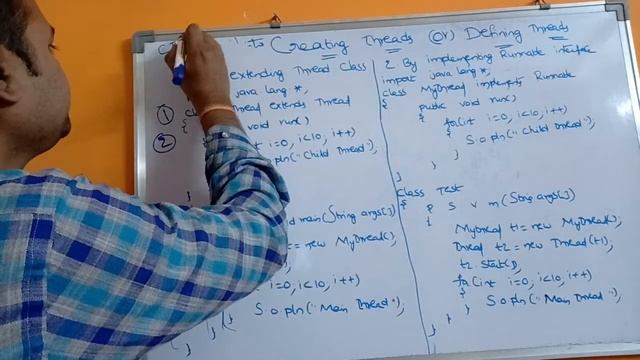 to Creating Threads (or) Defining Threads
extending Thread Class
java lang *;
① Thread extends Thread
{ void run()
② int i=0, i<10, i++)
S o pln("Child Thread");
}
main(String args[])
= new MyThread();
int i=0, i<10, i++)
S o pln("Main Thread");
}
}
2 By implementing Runnable interface
import java lang *;
class MyThread implements Runnable
{ public void run()
{ for(int i=0, i<10, i++)
{ S o pln("Child Thread");
}
}
}
Class Test
{ P S v m(String args[])
{
MyThread t1 = new MyThread();
Thread t2 = new Thread(t1);
t2. start();
for(int i=0, i<10, i++)
{ S o pln("Main Thread");
}
}
}